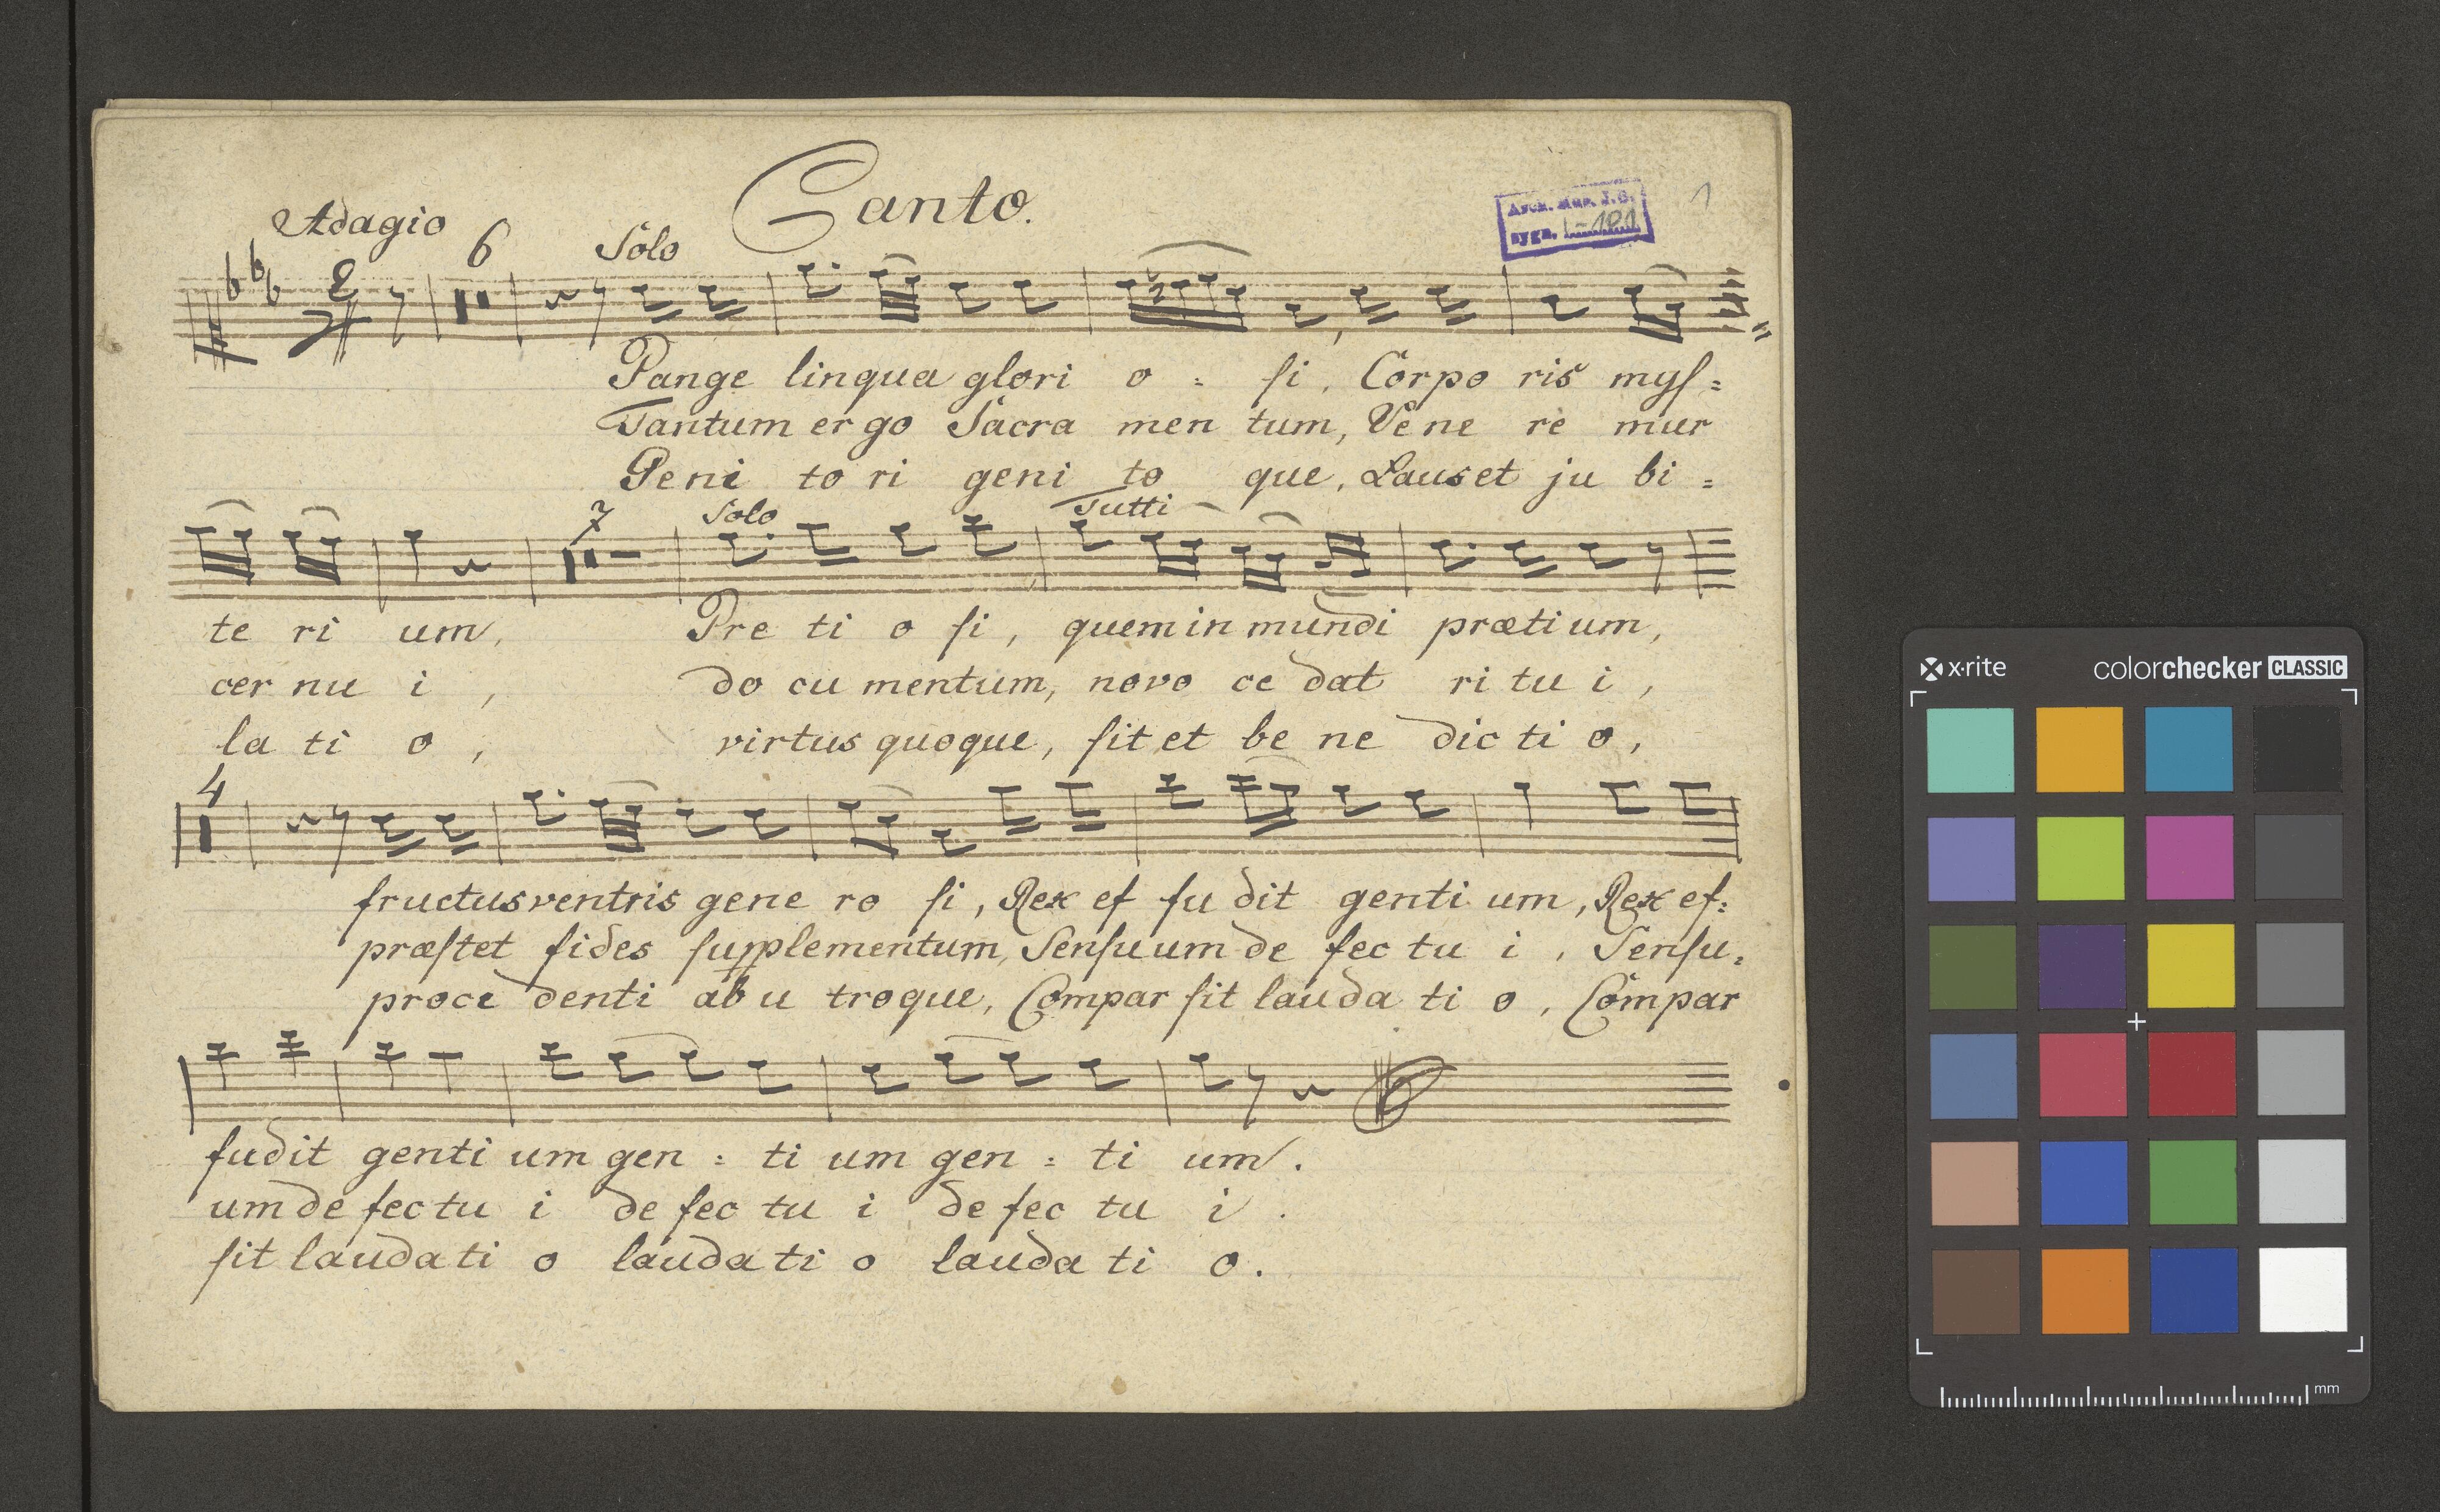 Canto.
1
Adagio
6
Solo
Pange lingua glori o = ſi, Corpo ris myſ=
Tantum ergo Sacra men tum, Vene re mur
Geni to ri geni to que, Laus et ju bi =
7 Solo Tutti
te ri um, Pre ti o ſi, quem in mundi prætium,
cer nu i, do cu mentum, novo ce dat ri tu i,
la ti o, virtus quoque, ſit et be ne dic ti o,
4
fructus ventris gene ro ſi, Rex ef fu dit genti um, Rex ef=
præſtet fides ſupplementum, Senſuum de fec tu i, Senſu=
proce denti ab u troque, Compar ſit lauda ti o, Compar
fudit genti um gen = ti um gen = ti um.
um de fec tu i de fec tu i de fec tu i.
ſit lauda ti o lauda ti o lauda ti o.
x·rite colorchecker CLASSIC
mm